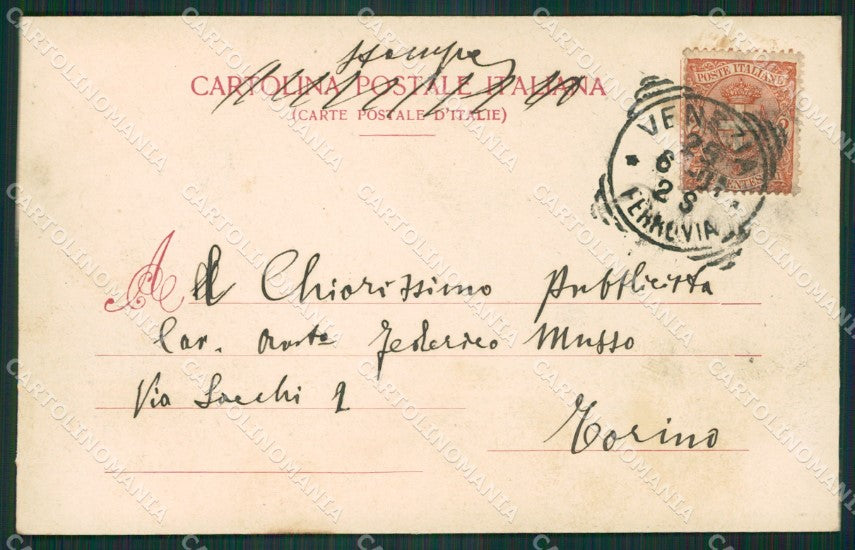 Stampe
CARTOLINA POSTALE ITALIANA
(CARTE POSTALE D'ITALIE)
POSTE ITALIANE
VENEZIA
FERROVIA
Al Chiarissimo Pubblicista
Cav. Federico Musso
Via Sacchi 2
Torino
CARTOLINOMANIA